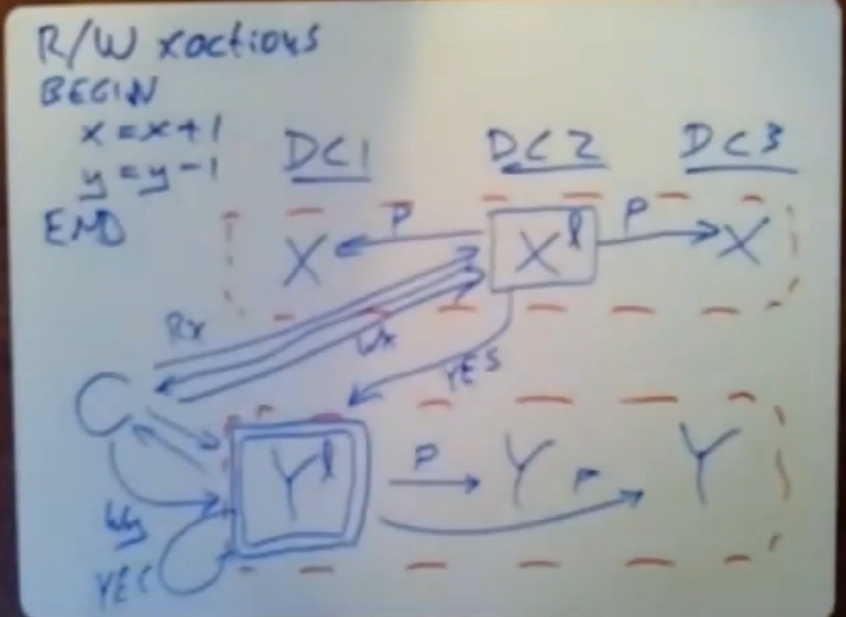 R/W xactions
BEGIN
x = x + 1
y = y - 1
END
DC1 DC2 DC3
X P X l P X
Rx
Wx
YES
C
Y l P Y P Y
Wy
YES